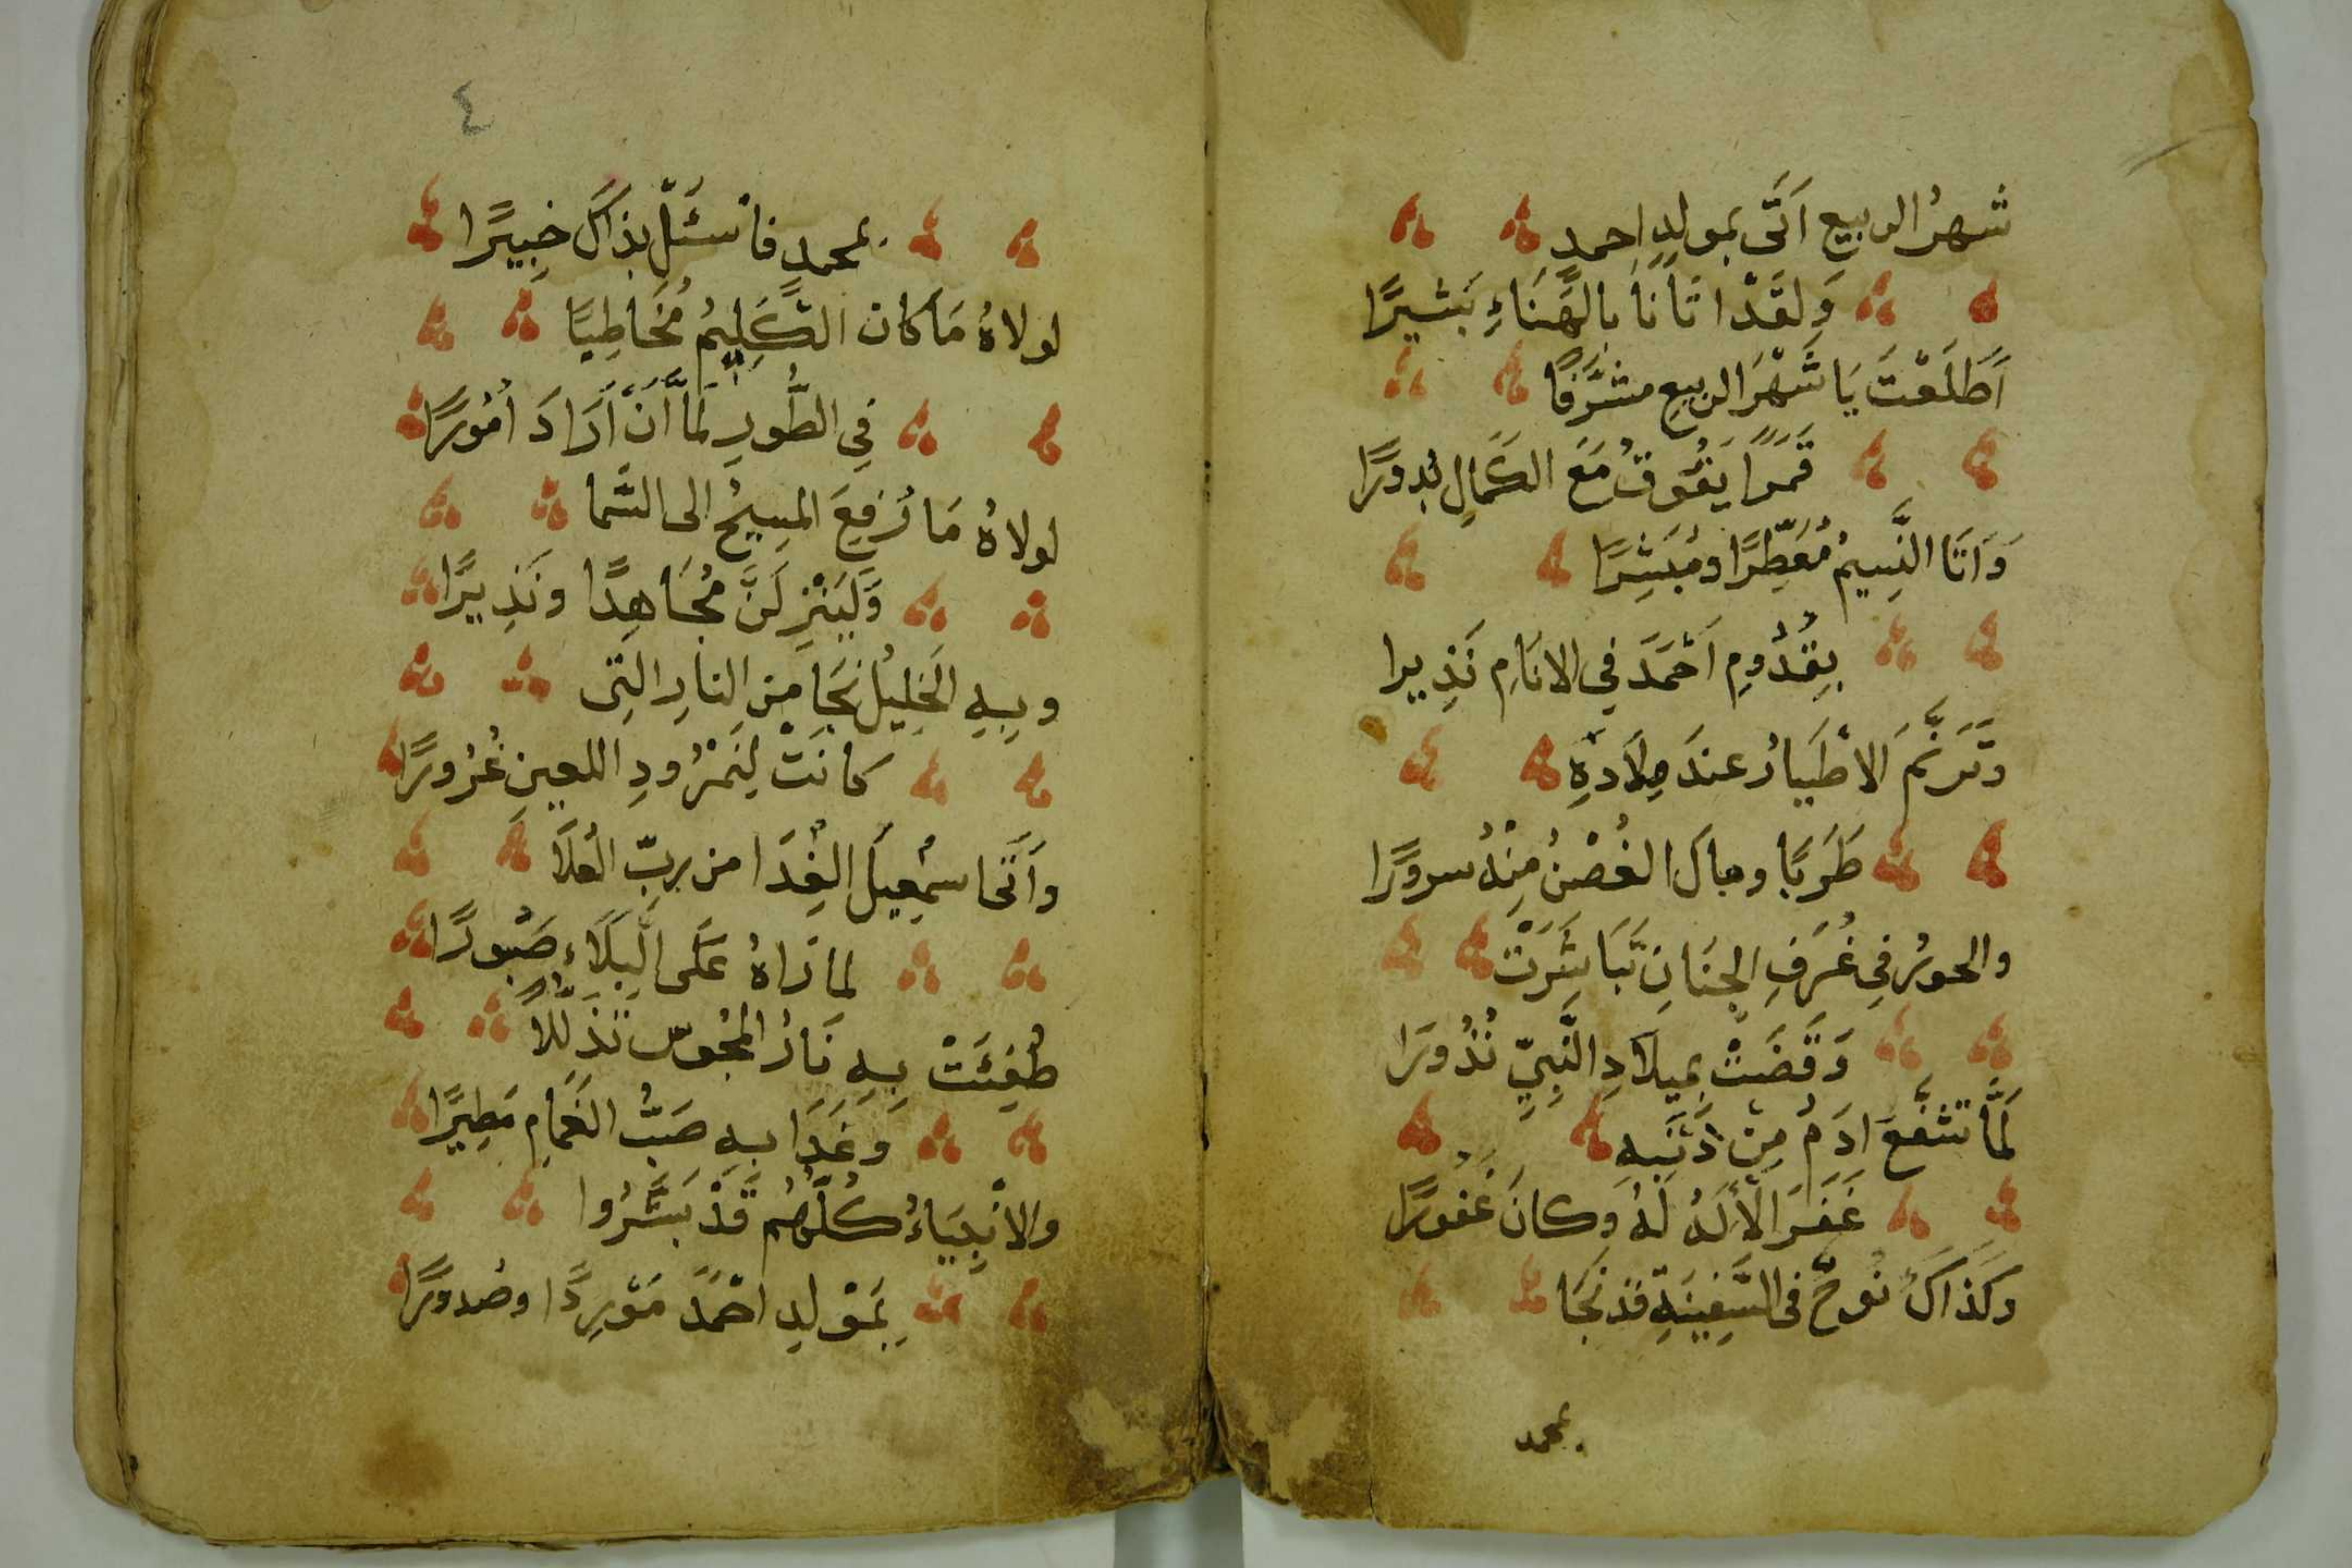 شهرُ الربيع اَتَى بمولدِ احمدِ
وَلقَدْ اتَانَا بِالهَنَاءِ بَشيرًا
اَطَلَعْتَ يَا شَهْرَ الربيع مشَرَّفًا
قَمَرًا يَفُوقُ مَعَ الكَمَالِ بُدورًا
وَاَتَا النَّسِيمُ مُعَطِّرًا ومُبَشِرًا
بِقُدُومِ اَحْمَدَ في الانَامِ نَذِيرا
وَتَرَنَّمَ الاطْيَارُ عندَ مِلَادَهِ
طَرَبًا ومالَ الغُصْنُ مِنْهُ سرورًا
والحورُ فِى غُرَفِ الجِنَانِ تَبَاشَرَتْ
وَقَضَتْ بميلَادِ النَّبِيِّ نُذُورَا
لَمَّا تشَفَّعَ ادَمُ مِنْ ذَنْبِهِ
غَفَرَ الْاِلَهُ لَهُ وكانَ غَفُورًا
وَكَذَاكَ نُوحٌ فى السَّفِينَةِ قد نَجَا
بمحمد
٤
بمحمدٍ فاسْئَلْ بذاكَ خبِيرًا
لولاهُ مَا كانَ الكَلِيمُ مُخَاطِبًا
فِي الطُّورِ لَمَّا اَنْ اَرَادَ اُمُورًا
لولاهُ مَا رُفِعَ المسِيحُ الى السَّما
وَلَيَنْزِلَنَّ مُجَاهِدًا ونَذِيرًا
وبِهِ الخَلِيلُ نَجَا مِنَ النارِ التِى
كانَتْ لِنَمْرُودِ اللعينِ غُرُورًا
وَاَتَى اسْمعِيلَ الفِدَا من ربِّ العُلَا
لما رَاهُ عَلَى البَلَاءِ صَبُورًا
طُفِئَتْ بِهِ نَارُ المجُوسِ تَذَلُّلًا
وغَدَا بهِ صَبُّ الغَمَامِ مَطِيرًا
والانْبِيَاءُ كُلُّهُم قَدْ بَشَّرُوا
بمَوْلدِ احْمَدَ مَوْرِدًا وصُدورًا